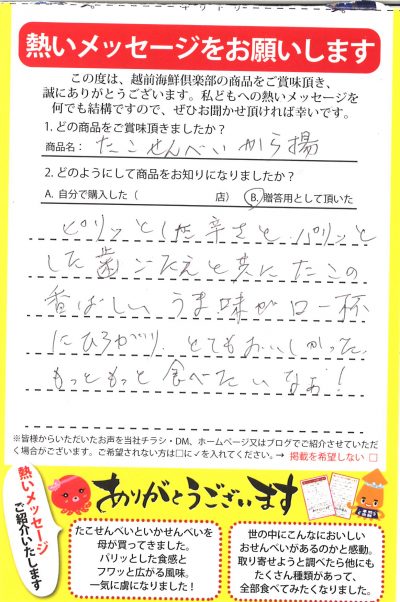 熱いメッセージをお願いします
この度は、越前海鮮倶楽部の商品をご賞味頂き、
誠にありがとうございます。私どもへの熱いメッセージを
何でも結構ですので、ぜひお聞かせ頂ければ幸いです。
1. どの商品をご賞味頂きましたか？
商品名： たこせんべいから揚
2. どのようにして商品をお知りになりましたか？
A. 自分で購入した（ 店） B. 贈答用として頂いた
ピリッとした辛さと、パリッと
した歯ごたえと共にたこの
香ばしい うま味が口一杯
にひろがり、とてもおいしかった。
もっともっと食べたいなぁ！
※皆様からいただいたお声を当社チラシ・DM、ホームページ又はブログでご紹介させていただ
く場合がございます。ご希望されない方は□に✓を入れてください。→ 掲載を希望しない □
熱いメッセージ
ご紹介いたします
ありがとうございます
たこせんべいといかせんべいを
母が買ってきました。
パリッとした食感と
フワッと広がる風味。
一気に虜になりました！
世の中にこんなにおいしい
おせんべいがあるのかと感動。
取り寄せようと調べたら他にも
たくさん種類があって、
全部食べてみたくなりました。